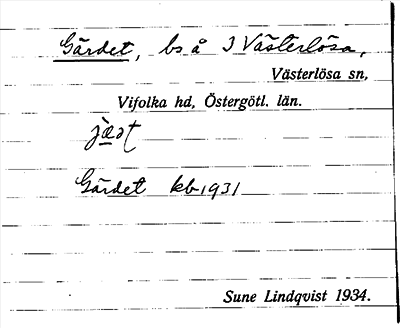 Gärdet, bs å 3 Västerlösa,
Västerlösa sn,
Vifolka hd, Östergötl. län.
Gärdet kb 1931
Sune Lindqvist 1934.